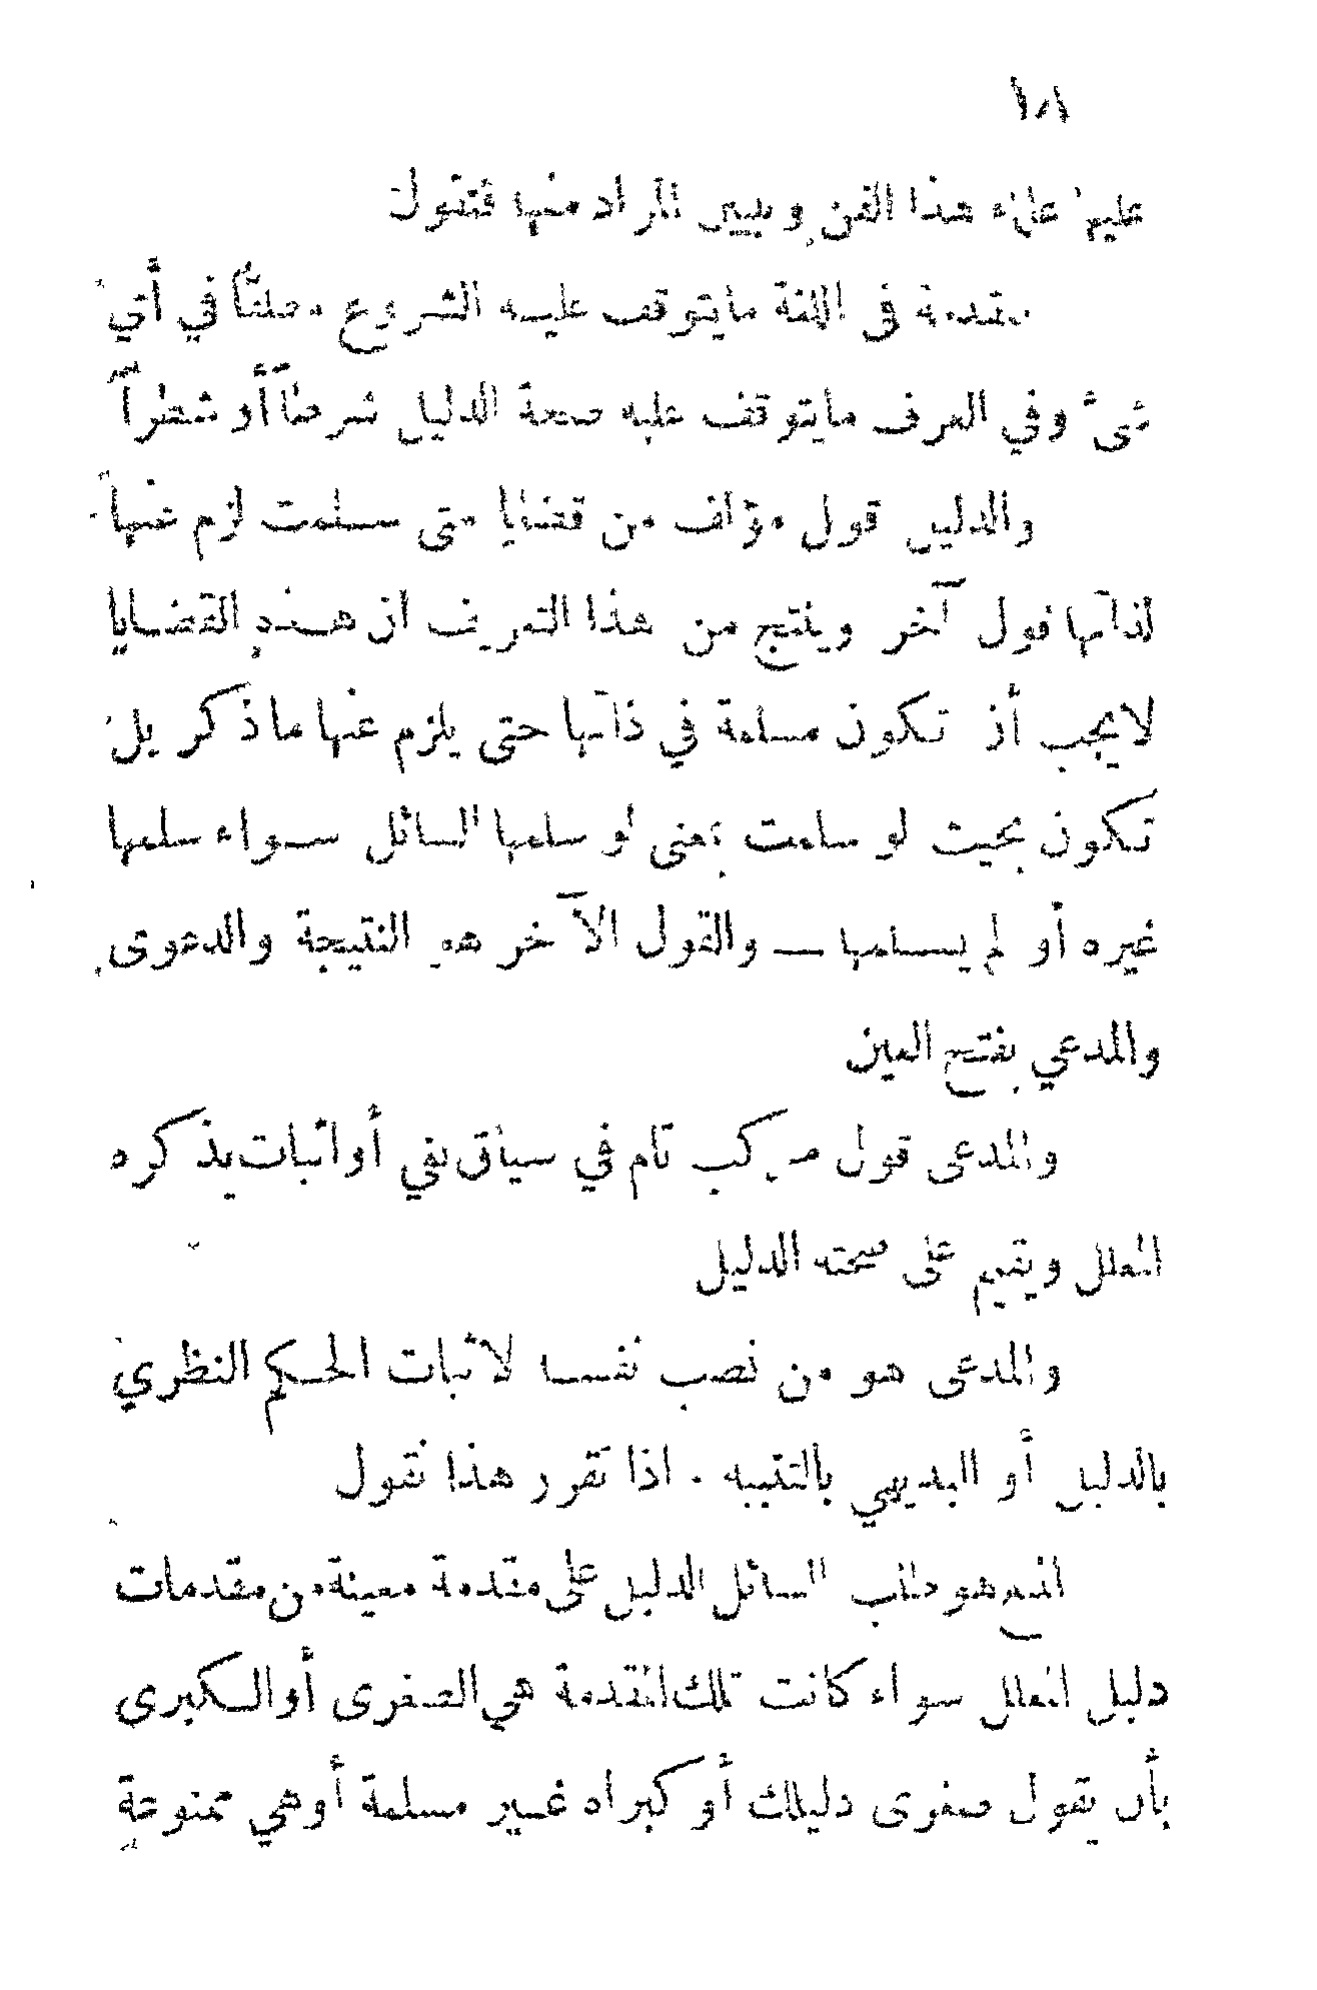 عليها علماء هذا الفن ونبين المراد منها فنقول
مقدمة في اللغة مايتوقف عليه الشروع مطلقاً في أي
شيء وفي العرف مايتوقف عليه صحة الدليل شرطاً أو شطراً
والدليل قول مؤلف من قضايا متى سلمت لزم عنها
لذاتها قول آخر وينتج من هذا التعريف ان هذه القضايا
لايجب أن تكون مسلمة في ذاتها حتى يلزم عنها ماذكر بل
تكون بحيث لو سلمت بمعنى لو سلمها السائل سواء سلمها
غيره أو لم يسلمها — والقول الآخر هو النتيجة والدعوى
والمدعي بفتح العين
والمدعى قول مركب تام في سياق نفي أو اثبات يذكره
المعلل ويقيم على صحته الدليل
والمدعى هو من نصب نفسه لاثبات الحكم النظري
بالدليل أو البديهي بالتنبيه . اذا تقرر هذا نقول
المنع هو طلب السائل الدليل على مقدمة معينة من مقدمات
دليل المعلل سواء كانت تلك المقدمة هي الصغرى أو الكبرى
بأن يقول صغرى دليلك أو كبراه غير مسلمة أو هي ممنوعة